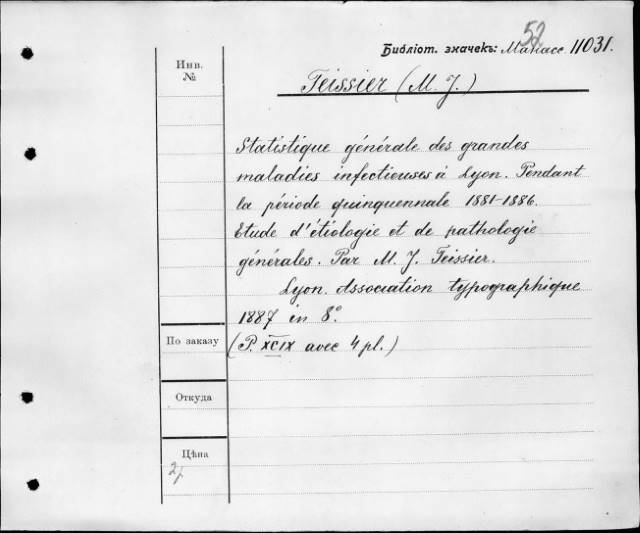 52
Библіот. значекъ: Манасс. 11031.
Инв.
№
Teissier (M. J.)
Statistique générale des grandes
maladies infectieuses à Lyon. Pendant
la période quinquennale 1881-1886.
Etude d'étiologie et de pathologie
générales. Par M. J. Teissier.
Lyon. Association typographique
1887 in 8°.
По заказу
(P. XCIX avec 4 pl.)
Откуда
Цѣна